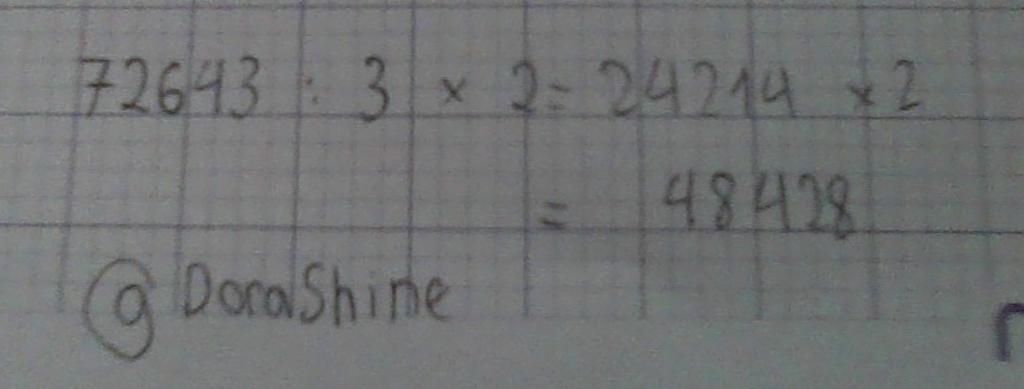 72643 : 3 × 2 = 24214 × 2
= 48428
@DoraShine